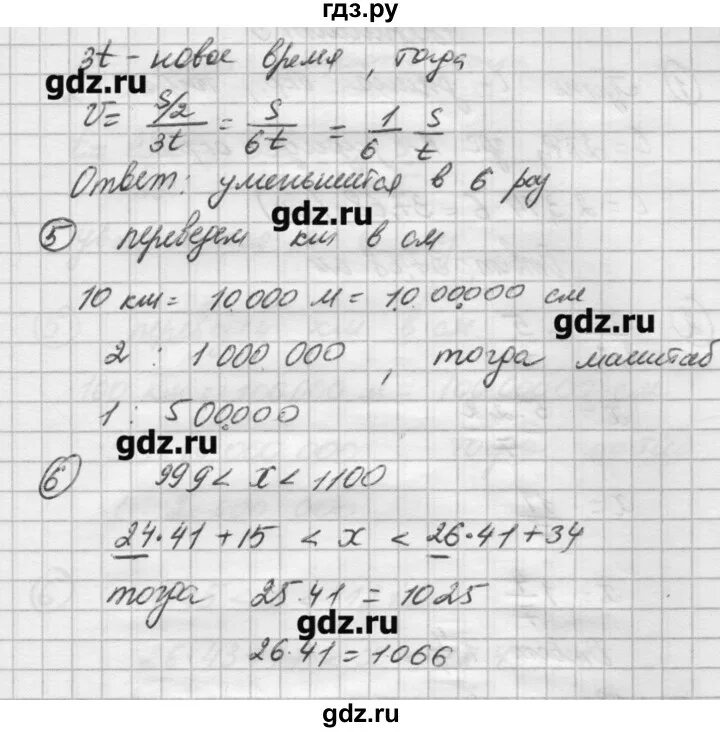 гдз.ру
3t - новое время, тогда
gdz.ru
V = S/2 / 3t = S / 6t = 1/6 S/t
Ответ: уменьшится в 6 раз
gdz.ru
5 переведем км в см
10 км = 10000 м = 1000000 см
gdz.ru
2 : 1 000 000, тогда масштаб
1 : 500000
gdz.ru
6 999 < x < 1100
24·41 + 15 < x < 26·41 + 34
тогда 25·41 = 1025
gdz.ru
26·41 = 1066
gdz.ru